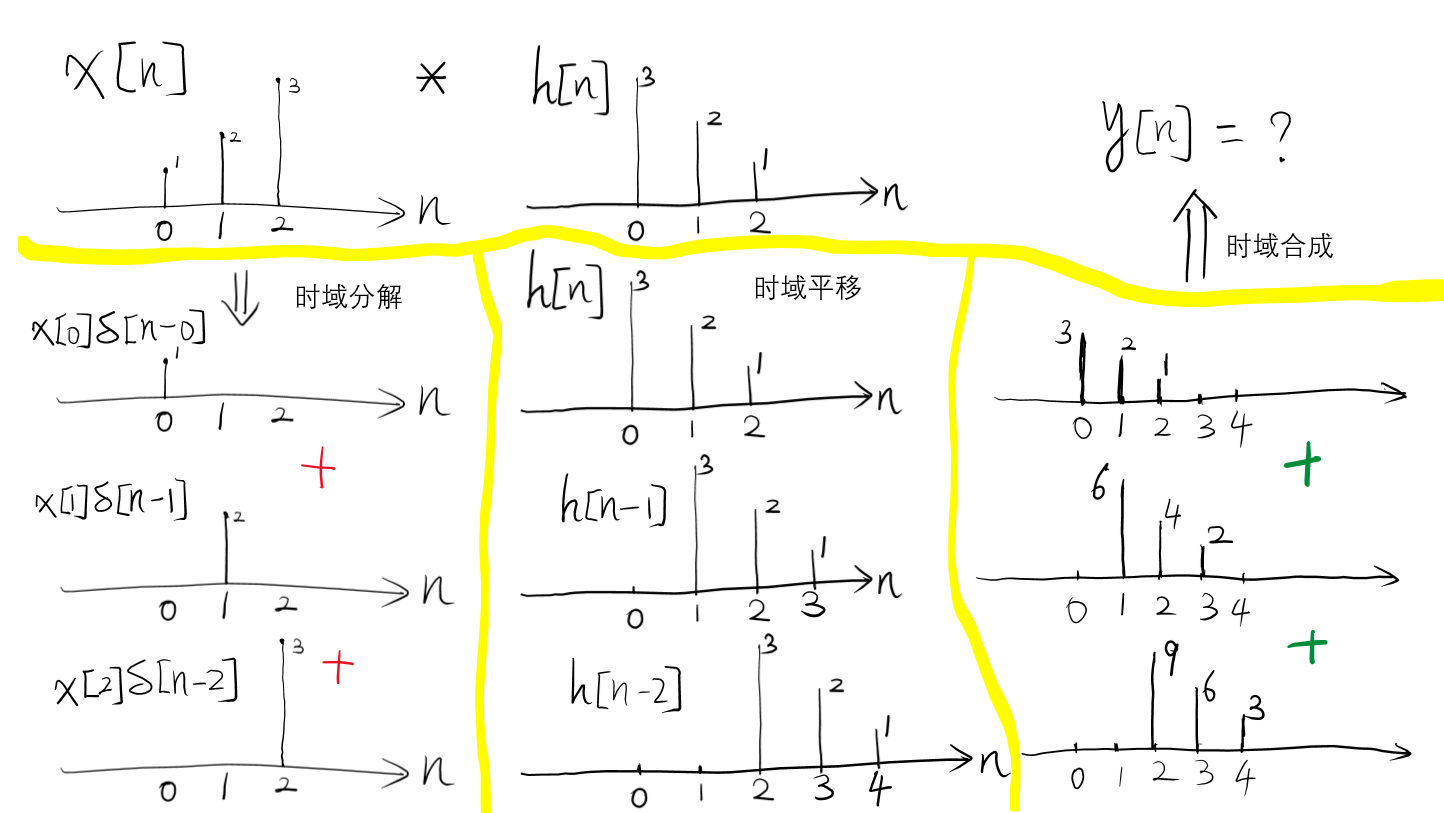 x[n]
*
h[n]
y[n] = ?
1
2
3
0 1 2 n
3
2
1
0 1 2 n
时域分解
时域平移
时域合成
x[0]δ[n-0]
1
0 1 2 n
+
x[1]δ[n-1]
2
0 1 2 n
+
x[2]δ[n-2]
3
0 1 2 n
h[n]
3
2
1
0 1 2 n
h[n-1]
3
2
1
0 1 2 3 n
h[n-2]
3
2
1
0 1 2 3 4 n
3 2 1
0 1 2 3 4
+
6 4 2
0 1 2 3 4
+
9 6 3
0 1 2 3 4